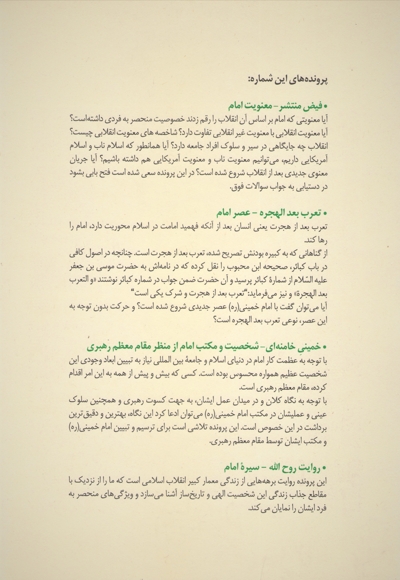 پرونده‌های این شماره:
• فیض منتشر - معنویت امام
آیا معنویتی که امام بر اساس آن انقلاب را رقم زدند خصوصیت منحصر به فردی داشته‌است؟
آیا معنویت انقلابی با معنویت غیر انقلابی تفاوت دارد؟ شاخصه های معنویت انقلابی چیست؟
انقلاب چه جایگاهی در سیر و سلوک افراد جامعه دارد؟ آیا همانطور که اسلام ناب و اسلام
آمریکایی داریم، می‌توانیم معنویت ناب و معنویت آمریکایی هم داشته باشیم؟ آیا جریان
معنوی جدیدی بعد از انقلاب شروع شده است؟ در این پرونده سعی شده است فتح بابی بشود
در دستیابی به جواب سوالات فوق.
• تعرب بعد الهجره - عصر امام
تعرب بعد از هجرت یعنی انسان بعد از آنکه فهمید امامت در اسلام محوریت دارد، امام را
رها کند.
از گناهانی که به کبیره بودنش تصریح شده، تعرب بعد از هجرت است. چنانچه در اصول کافی
در باب کبائر، صحیحه ابن محبوب را نقل کرده که در نامه‌اش به حضرت موسی بن جعفر
علیه السّلام از شمارهٔ کبائر پرسید و آن حضرت ضمن جواب در شماره کبائر نوشتند «و التعرب
بعد الهجرة» و نیز می‌فرماید:"تعرب بعد از هجرت و شرک یکی است"
آیا می‌توان گفت با امام خمینی(ره) عصر جدیدی شروع شده است؟ و حرکت بدون توجه به
این عصر، نوعی تعرب بعد الهجره است؟
• خمینی خامنه‌ای - شخصیت و مکتب امام از منظر مقام معظم رهبری
با توجه به عظمت کار امام در دنیای اسلام و جامعهٔ بین المللی نیاز به تبیین ابعاد وجودی این
شخصیت عظیم همواره محسوس بوده است. کسی که بیش و پیش از همه به این امر اقدام
کرده، مقام معظم رهبری است.
با توجه به نگاه کلان و در میدان عمل ایشان، به جهت کسوت رهبری و همچنین سلوک
عینی و عملیشان در مکتب امام خمینی(ره) می‌توان ادعا کرد این نگاه، بهترین و دقیق‌ترین
برداشت در این خصوص است. این پرونده تلاشی است برای ترسیم و تبیین امام خمینی(ره)
و مکتب ایشان توسط مقام معظم رهبری.
• روایت روح الله - سیرهٔ امام
این پرونده روایت برهه‌هایی از زندگی معمار کبیر انقلاب اسلامی است که ما را از نزدیک با
مقاطع جذاب زندگی این شخصیت الهی و تاریخ‌ساز آشنا می‌سازد و ویژگی‌های منحصر به
فرد ایشان را نمایان می‌کند.